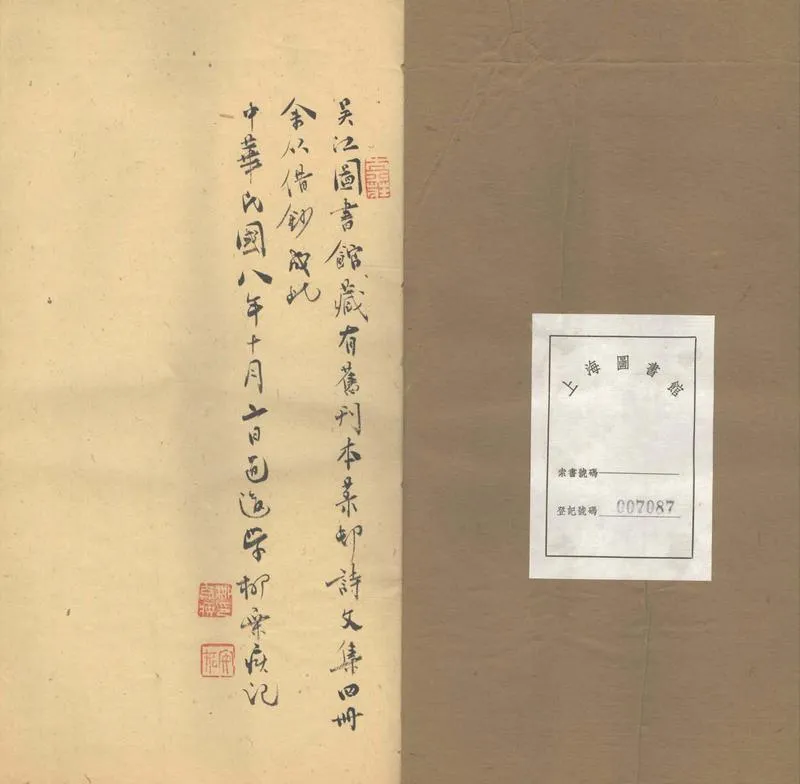 吳江圖書館藏有舊刊本菜邨詩文集四冊
余从借鈔成此
中華民國八年十月日邑後学柳棄疾記
上海圖書館
索書號碼
登記號碼 007087